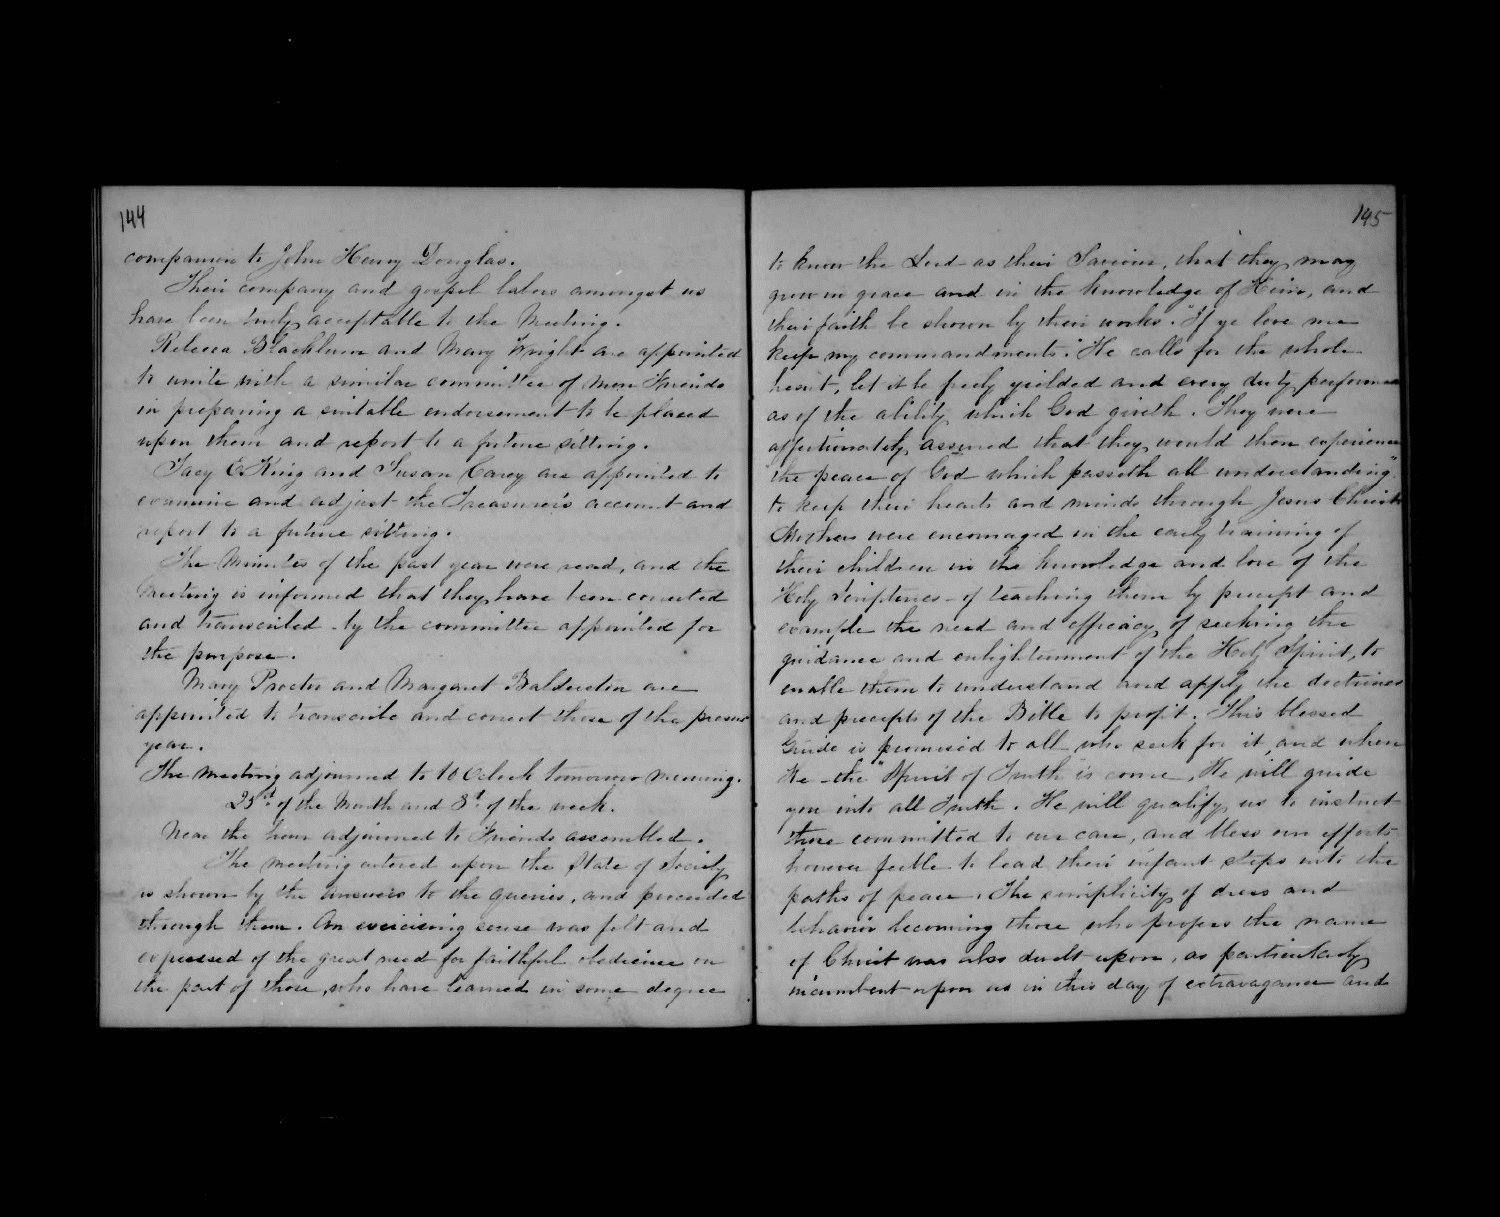 144
companion to John Henry Douglas.
Their company and gospel labors amongst us
have been truly acceptable to the Meeting.
Rebecca Blackburn and Mary Wright are appointed
to unite with a similar committee of men Friends
in preparing a suitable endorsement to be placed
upon them and report to a future sitting.
Tacy E King and Susan Carey are appointed to
examine and adjust the Treasurer's account and
report to a future sitting.
The Minutes of the past year were read, and the
Meeting is informed that they have been corrected
and transcribed by the committee appointed for
the purpose.
Mary Procter and Margaret Balderston are
appointed to transcribe and correct those of the present
year.
The meeting adjourned to 10 Oclock tomorrow morning.
23d. of the Month and 3d. of the week.
Near the hour adjourned to Friends assembled.
The meeting entered upon the State of Society
as shown by the answers to the queries, and proceeded
through them. An exercising sense was felt and
expressed of the great need for faithful obedience on
the part of those, who have learned in some degree
145
to know the Lord as their Saviour, that they may
grow in grace and in the knowledge of Him, and
their faith be shown by their works. "If ye love me
keep my commandments." He calls for the whole
heart, let it be freely yielded and every duty performed
as of the ability which God giveth. They were
affectionately assured that they would then experience
"the peace of God which passeth all understanding"
to keep their hearts and minds through Jesus Christ
Mothers were encouraged in the early training of
their children in the knowledge and love of the
Holy Scriptures - of teaching them by precept and
example the need and efficacy of seeking the
guidance and enlightenment of the Holy Spirit, to
enable them to understand and apply the doctrines
and precepts of the Bible to profit. This blessed
Guide is promised to all who seek for it and when
He - the "Spirit of Truth is come, He will guide
you into all Truth. He will qualify us to instruct
those committed to our care, and bless our efforts
however feeble to lead their infant steps into the
paths of peace. The simplicity of dress and
behavior becoming those who profess the name
of Christ was also dwelt upon, as particularly
incumbent upon us in this day of extravagance and